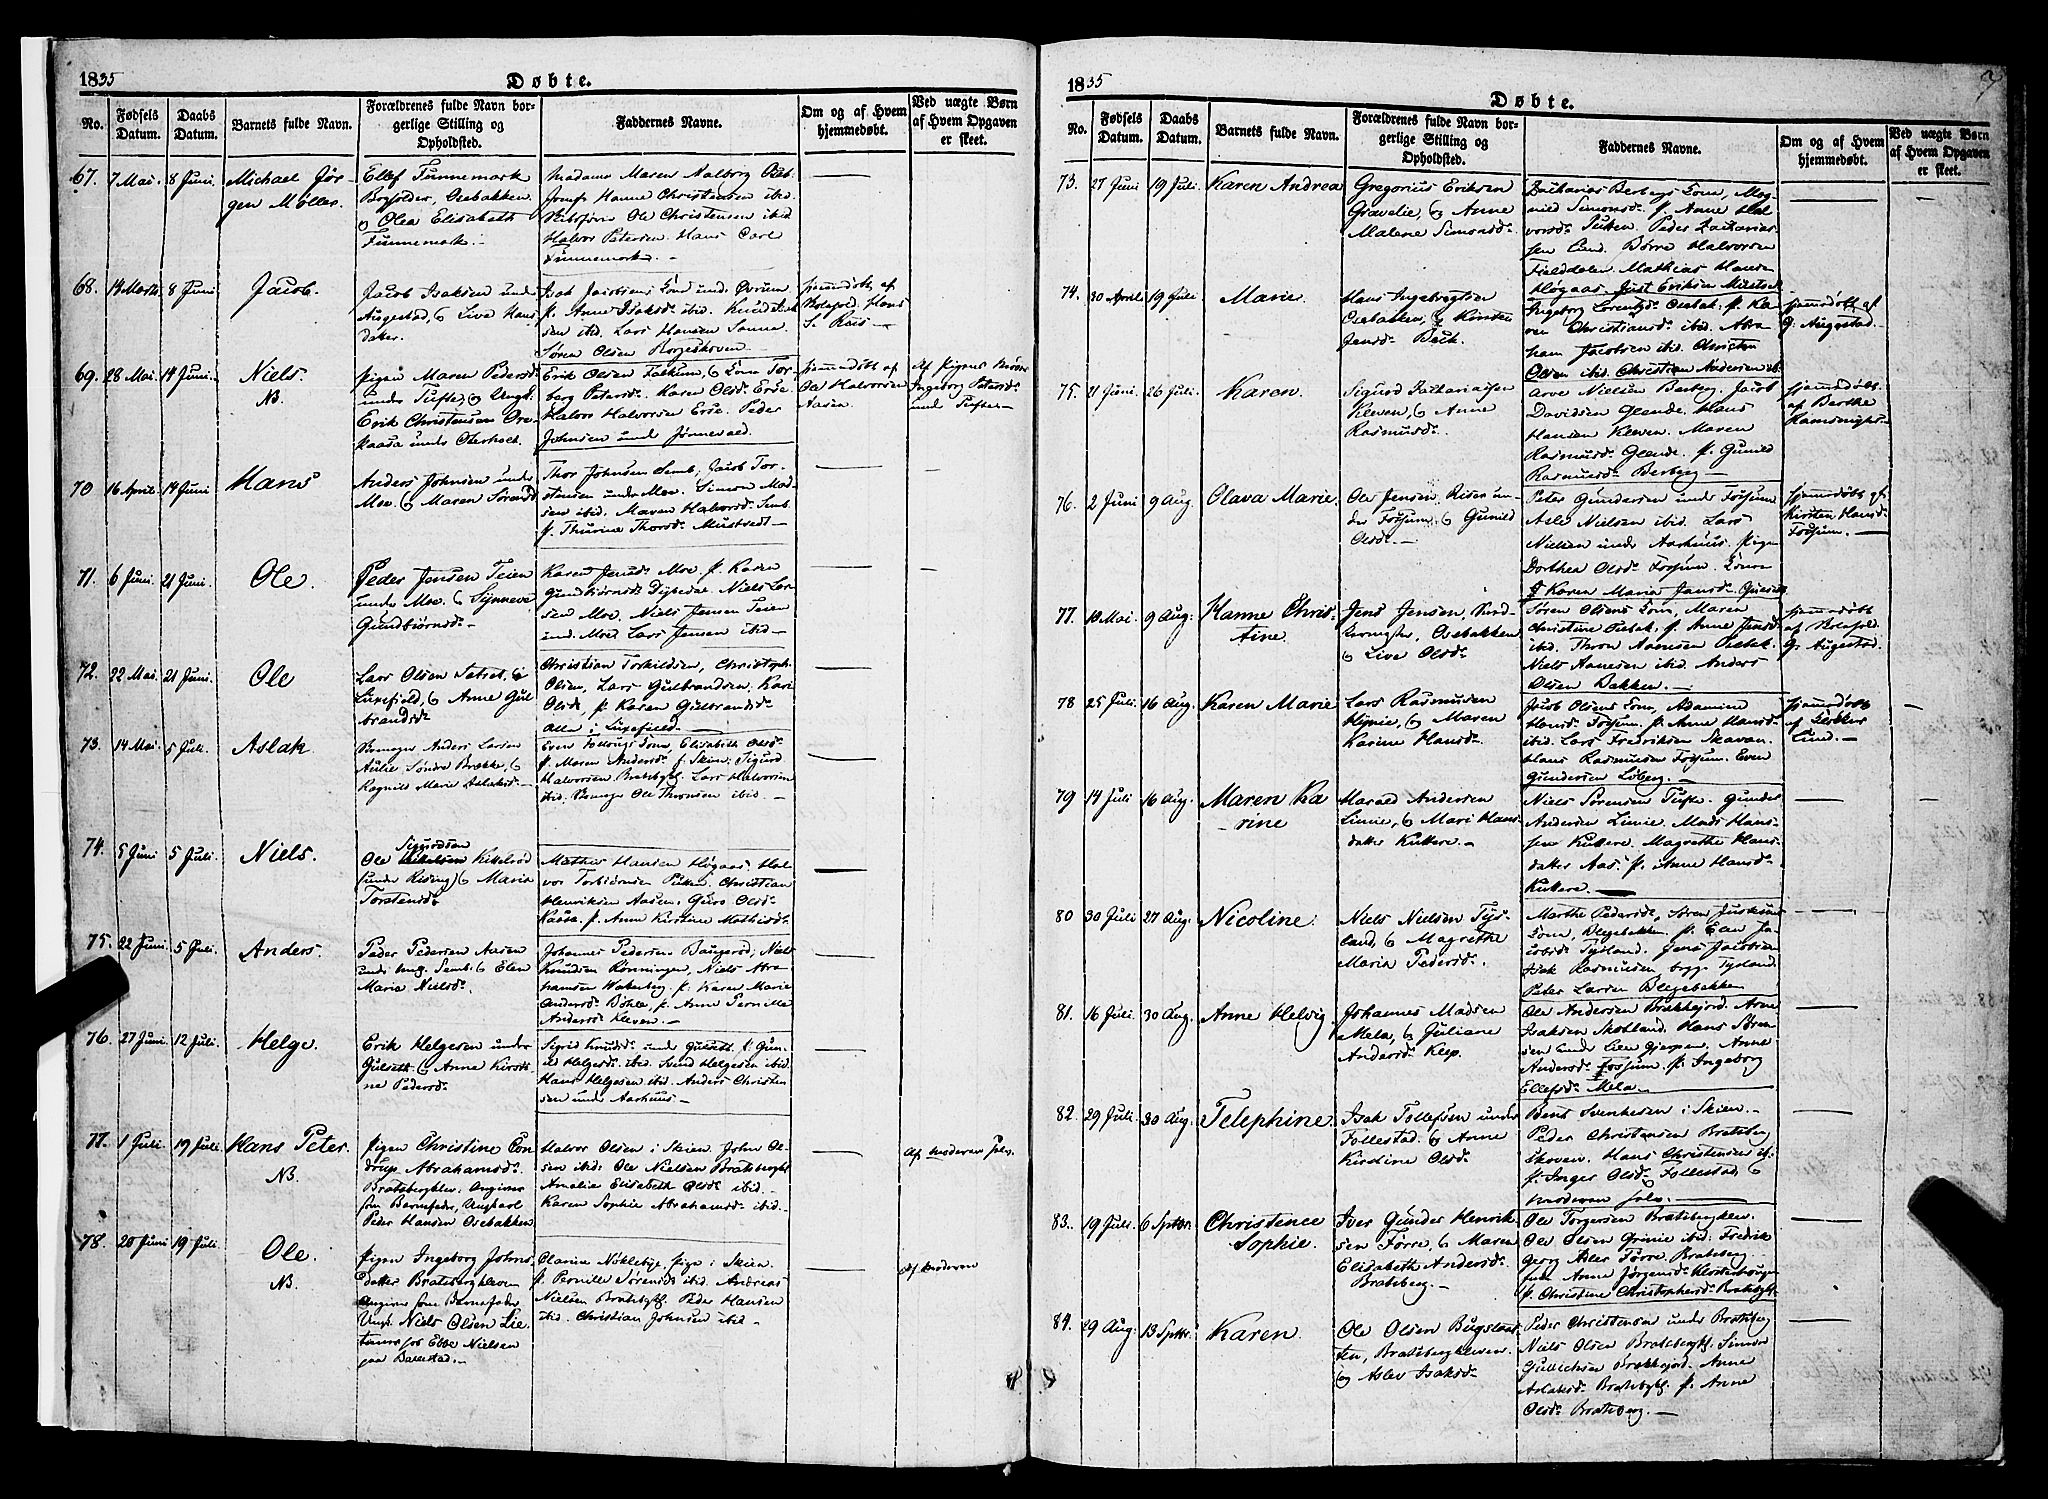 1835
Døbte.
No.
Fødsels Datum.
Daabs Datum.
Barnets fulde Navn.
Forældrenes fulde Navn bor-
gerlige Stilling og
Opholdsted.
Faddernes Navne.
Om og af Hvem
hjemmedøbt.
Ved uægte Børn
af Hvem Opgaven
er skeet.
67. 7 Mai. 8 Juni. Michael Jør-
gen Møller.
Ellef Tunnemark
Osebakken.
& Olea Elisabeth
Tunnemark.
Madame Maren Aalborg Oseb.
Jomf. Hanne Christensen ibid.
Ole Christensen ibid.
Halvor Petersen. Hans Carl
Tunnemark.
68. 14 Marts 8 Juni Jacob.
Jacob Isaksen under
Augestad, & Live Hans-
datter.
Isak Jacobsens Kone und.
p. Anne Isaksd. ibid. Knud Isak-
sen ibid. Lars Hansen
Søren Olsen Borgeskoven
hjemmedøbt af
69. 28 Mai. 14 Juni. Niels.
NB.
Pigen Maren Pedersd.
under Tufte, & Ungk.
Erik Christensen
under
Erik Olsen Falkum, & Kone Tor-
berg Petersd. Karen Olsd.
Halvor Halvorsen Peder
Johnsen under Jønnevald.
hjemmedøbt af
Ole Halvorsen
Aasen.
Af Pigens
Ingeborg Petersd.
under Tufte
70 16 April 14 Juni Hans
Anders Johnsen under
Moe & Maren Sørensd.
Thor Johnsen Semb, Jacob Tor-
stensen under Moe. Simon Mad-
sen ibid. Maren Halvorsd. Semb
p. Thurine Thorsd. Mustvedt
71. 6 Juni. 21 Juni. Ole.
Peder Jensen Teien
under Moe. & Synneve
Gundbjørnsd.
Karen Jensd. Moe p. Karen
Gundbjørnsd. Dyhedal Niels Lar-
sen Moe. Niels Jensen Teien
und. Moe Lars Jensen ibid
72. 22 Mai. 21 Juni. Ole
Lars Olsen i
Luxefjeld, & Anne Gul-
brandsd.
Christian Torkildsen, Christoph.
Olsen, Lars Gulbrandsen. Kari
Olsd, p. Karen Gulbrandsd.
Alle i Luxefjeld.
73. 14 Mai. 5 Juli. Aslak
Anders Larsen
Søndre Brække, &
Ragnild Marie Aslaksd.
Even Kone, Elisabeth Olsd.
p. Maren Andersd. f. Skien. Sigurd
Halvorsen Bratsbgkl. Lars Halvorsen
ibid. Ole Thronsen ibid.
74. 5 Juni 5 Juli. Niels.
Sigurdsen
Ole Kittelrød
(under Rising) & Maria
Torstensd.
Mathis Hansen Høgaas. Hal-
vor Torbjørnsen Putten. Christian
Henriksen Aasen. Guro Olsd.
Kaasa. p. Anne Kirstine Mathisd.
75. 22 Juni. 5 Juli. Anders.
Peder Pedersen Aasen
under Semb. & Elen
Maria Nielsd.
Johannes Pedersen Baugerød, Niels
Knudsen Rønningen, Niels Abra-
hamsen Wakerberg p. Karen Marie
Andersd. Bøhle, p. Anne Pernille
Andersd. Kleven.
76. 27 Juni. 12 Juli. Helge.
Erik Helgesen under
Gulseth & Anne Kirsti-
ne Pedersd.
Sigrid Knudsd. under Gulseth. p. Gun-
ild Helgesd. ibid. Svend Helgesen ibid.
Hans Helgesen ibid. Anders Christen-
sen under Aarhuus
77. 1 Juli. 19 Juli. Hans Peter.
NB.
Pigen Christine Con-
drup Abrahamsd.
Bratsbergklev. Angiven
som Barnefader, Ungkarl
Peder Hansen Osebakken
Halvor Olsen i Skien. John Ol-
sen ibid. Ole Nielsen Bratsbergkl.
Amelia Elisabeth Olsd. ibid.
Karen Sophie Abrahamsd. ibid.
Af Moderen selv.
78. 20 Juni 19 Juli. Ole
NB.
Pigen Ingeborg Johns-
datter Bratsbergkleven
Angiven som Barnefader
Ungk. Niels Olsen
Ebbe Nielsen
paa Ballestad.
Clarine Nøkleby, pige i Skien
p. Pernille Sørensd. ibid. Andreas
Nielsen Bratsbgkl. Peder Hansen
ibid. Christian Johnsen ibid
Af Moderen
1835
7
Døbte.
No.
Fødsels Datum.
Daabs Datum.
Barnets fulde Navn.
Forældrenes fulde Navn bor-
gerlige Stilling og
Opholdsted.
Faddernes Navne.
Om og af Hvem
hjemmedøbt.
Ved uægte Børn
af Hvem Opgaven
er skeet.
73. 27 Juni 19 Juli. Karen Andrea
Gregorius Eriksen
Gravelie, & Anne
Malene Simonsd.
Zacharias Berbergs Kone, Mag-
nild Simonsd. p. Anne Hal-
vorsd. Putten. Peder Zacharias-
sen Lund. Børre Halvorsen
Fjelldalen Mathias Hansen
Høgaas. Just Eriksen
74. 30 April 19 Juli Marie.
Hans Ingebregtsen
Osebakken, & Kirsten
Jensd. Bech.
Ingeborg Lorentsd. Osebak. p. Ka-
ren Christiansd. ibid. Abra-
ham Jacobsen ibid. Christen
Olsen ibid. Christian Andersen ib.
hjemmedøbt af
G. Augestad.
75. 21 Juni. 26 Juli. Karen.
Sigurd Zachariasen
Kleven, & Anne
Rasmusd.
Arve Nielsen Berberg. Jacob
Davidsen Glende. Hans
Hansen Kleven. Maren
Rasmusd. Glende. p. Gunild
Rasmusd. Berberg
hjemmedøbt
af Berthe
76. 2 Juni 9 Aug. Olava Marie.
Ole Jensen, Riser un-
der Fossum, & Gunild
Olsd.
Peter Gundersen under Fossum
Asle Nielsen ibid. Lars
Nielsen under Aarhuus pigen
Dorthea Olsd. Fossum. Kone
& Karen Maria Jansd.
hjemmedøbt af
Kirsten Hansd.
Fossum.
77. 10 Mai. 9 Aug. Hanne Chris-
tine.
Jens Jensen,
Osebakken
& Live Olsd.
Søren Olsens Kone, Maren
Christine Osebak. p. Anne Jensd.
ibid. Thron Osebak.
Niels Aanesen ibid. Anders
Olsen Bakken.
hjemmedøbt
af
G. Augestad.
78 25 Juli. 16 Aug. Karen Marie
Lars Rasmussen
& Maren
Karine Hansd.
Jacob Olsens Kone, Adamine
Hansd. Fossum. p. Anne Hansd.
ibid. Lars Fredriksen Skavan.
Hans Rasmussen Fossum. Even
Gundersen Løberg.
hjemmedøbt
af
Lund.
79 14 Juli 16 Aug. Maren Ka-
rine
Harald Andersen
Limie, & Mari Hans-
datter Kuttere.
Niels Sørensen Tufte. Gunder
Andersen Limie. Mads Han-
sen Kuttere. Magrethe Hans-
datter Aas. p. Anne Hansd.
Kuttere.
80 30 Juli 27 Aug. Nicoline.
Niels Nielsen Tys-
land, & Magrethe
Maria Pedersd.
Marthe Pedersd, Søren
Kone, Blegebakken. p. Elen Ja-
cobsd. Tysland. Jens Jacobsen
Isak Rasmussen Tysland.
Peter Larsen Blegebakken
81. 16 Juli. 30 Aug. Anne Helvig.
Johannes Madsen
Mela, & Juliane
Andersd. Kesp.
Ole Andersen Brækkejord. Arne
Isaksen Skotland. Hans Søren-
sen under Lille Gjerpen. Anne
Andersd. Fossum. p. Ingeborg
Ellefsd. Mela
82. 29 Juli. 30 Aug. Telephine.
Isak Tollefsen under
Follestad. & Anne
Kirstine Olsd.
Bent Svenkesen i Skien.
Peder Christensen Bratsberg
Skoven. Hans Christensen ib.
p. Inger Olsd. Follestad &
Moderen selv.
83. 19 Juli. 6 Sptbr. Christence
Sophie.
Iver Gunder Henrik-
sen Førre, & Maren
Elisabeth Andersd.
Bratsberg.
Ole Torgersen Bratsbergklev.
Ole Olsen Grinie ibid. Fredrik
Georg Adler Førre Bratsberg.
Anne Jørgensd. Klosterskogen
p. Christine Christophersd. Bratsbgkl.
84. 29 Aug. 13 Sptbr. Karen.
Ole Olsen Bugstaat-
ten, Bratsbergkleven.
& Aslev Isaksd.
Peder Christensen under Bratsberg
Niels Olsen Bratsbergkl. Simon
Gullichsen Brækkejord. Anne
Aslaksd. Bratsbgkl. p. Anne
Olsd. Bratsberg.